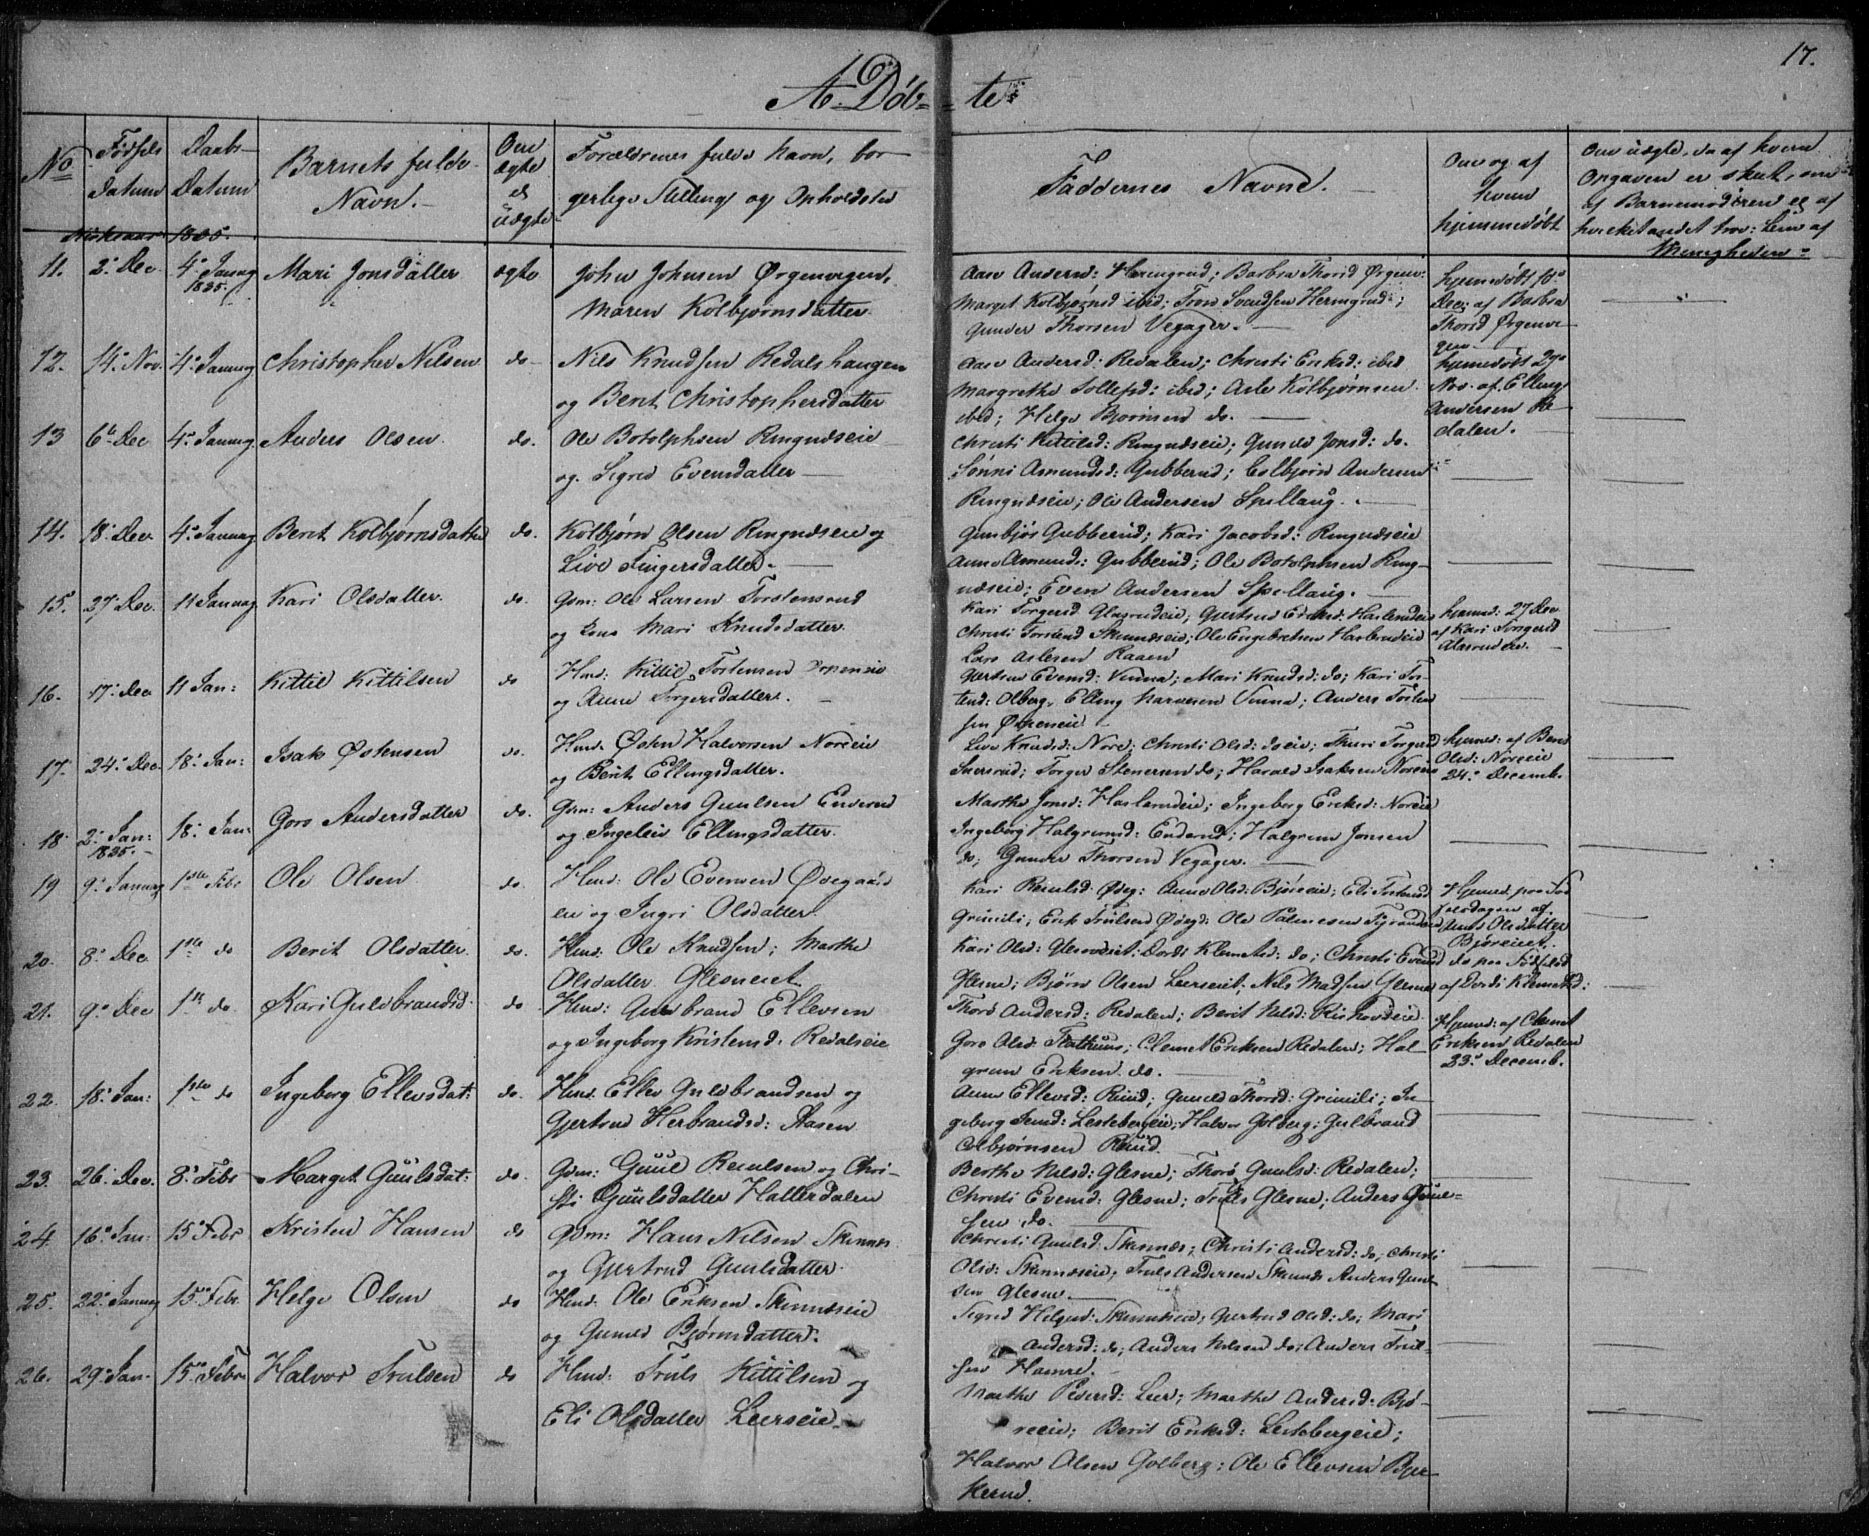 17.
A. Döb-te
No
Födsels Datum
Daabs-Datum
Barnets fulde Navn.
Om ægte el uægte
Forældrenes fulde Navn, borgerlige Stilling og Opholdsted
Faddernes Navne.
Om og af hvem hjemmedöbt
Om uægte, da af hvem Opgaven er skeet, om af Barnemoderen el af hvilket andet trov: Lem af Menigheden
Kirkeaar 1835.
11. 2. Dec. 4. Januag 1835. Mari Jonsdatter ægte John Johnsen Ørgenvigen,
Maren Kolbjørnsdatter.
Aase Andersd: Heringrud; Barbra Thorsd Ørgenv:
Marget Kolbjørnsd ibid; Tron Svendsen Heringrud;
Gunder Thorsen Vegager.
hjemdöbt 10
Dec: af Barbra
Thorsd Ørgenvi-
gen
12. 14. Nov. 4. Januag Christopher Nilsen do Nils Knudsen Redalshaugen
og Berit Christophersdatter
Aase Andersd: Redalen; Christi Eriksd: ibid
Margrethe Tollefsd: ibid; Asle Kolbjørnsen
ibid; Helge Bjørnsen do.
hjemdöbt
Nov. af Elling
Andersen Re-
dalen.
13 6te Dec 4. Januag Anders Olsen do. Ole Botolphsen Ringnæseie
og Sigrid Evensdatter
Christi Kittilsd: Ringnæseie; Gunild Jonsd: do.
Sönni Amundsd: Gubberud; Colbjørn Andersen
Ringnæseie; Ole Andersen Spellaug.
14. 18. Dec. 4. Januag Berit Kolbjørnsdatter do. Kolbjørn Olsen Ringnæseie og
Live Fingersdatter.
Gunbjör Gubberud; Kari Jacobsd: Ringnæseie
Anne Amunds: Gubberud; Ole Botolphsen Ring-
næseie; Even Andersen Spellaug.
15. 27. Dec. 11 Januag Kari Olsdatter. do. Gdm: Ole Larsen Torstensrud
og Mari Knudsdatter
Kari Torgersd Glasrudeie; Gjertrud Eriksd: Haslerudeie
Christi Torstensd Skinnæseie; Ole Engebretsen Haslerudeie
Lars Aslesen Raaen
hjemd. 27 Dec
af Kari Torgersd
Glasrudeie.
16. 17. Dec 11 Jan: Kittil Kittilsen do Hmd: Kittil Torstensen Öppeneie
og Anne Torgersdatter.
Gjertrud Evensd: Vinna; Mari Knudsd: do; Kari Tor-
stensd: Olberg; Elling Narvesen Vinna; Anders Torsten
sen Öppeneie
17. 24. Dec. 18. Jan: Isak Østensen do. Hmd. Østen Halvorsen Noreeie
og Berit Ellingsdatter.
Live Knudsd: Nore; Christi Olsd: do eie; Thuri Torgersd
Snersrud; Torger Stenersen do; Harald Isaksen Noreeie
hjemd: af Berit
Olsd: Noreeie
24. Decemb.
18. 2. Jan: 1835. 18. Jan: Goro Andersdatter do. Gdm: Anders Guulsen Enderud
og Ingeleiv Ellingsdatter.
Marthe Jonsd: Haslerudeie; Ingeborg Eriksd: Noreeie
Ingeborg Halgrimsd: Enderud; Halgrim Jonsen
do; Gunder Thorsen Vegager.
19 9. Januag 1ste Febr Ole Olsen do. Hmd: Ole Evensen Ødegaards
eie og Ingri Olsdatter.
Kari Reiulsd: Ødeg: Anne Olsd: Björeeie; Eli Torstensd
Grimili; Erik Trulsen Ødegd: Ole Palmesen Tyranderud
Hjemd. paa Föd
selsdagen af
Anne Olsdatter
Björeeiet.
20. 8. Dec 1ste do Berit Olsdatter. do. Hmd: Ole Knudsen; Marthe
Olsdatter Glesneeiet
Kari Olsd: Glesneeiet; Dordi Klemetsd: do; Christi Evensd
Glesne; Björn Olsen Leerseiet; Nils Madsen Glesne
do paa Födselsd
af Dordi Klemetsd:
21. 9. Dec 1ste do Kari Guldbrandsd. do. Hmd: Gulbrand Ellevsen
og Ingeborg Kristensd: Redalseie
Thorö Andersd: Redalen; Berit Nilsd: Rishovdeie
Goro Olsd: Clemet Eriksen Redalen; Hal-
grim Eriksen do.
Hjemd: af Clemet
Eriksen Redalen
23. Decemb.
22. 18. Jan: 1ste do Ingeborg Ellevsdat: do. Hmd. Ellev Guldbrandsen og
Gjertrud Herbrandsd: Aasen
Anne Ellevsd: Ruud; Gunild Thorsd: Grimili; In-
geborg Svends: Lesteberg eie; Halvor Golberg; Gulbrand
Colbjørnsen Ruud
23. 26. Dec. 8. Febr Marget Guulsdat: do. Gdm: Guul Reiulsen og Chri-
sti Guulsdatter Hallerdalen
Berthe Nilsd: Glesne; Thorö Guulsd: Redalen;
Christi Evensd: Glesne; Truls Glesne; Anders Guul-
sen do.
24. 16. Jan: 15. Febr Kristen Hansen do Gdm: Hans Nilsen Skinnes
og Gjertrud Guulsdatter.
Christi Guulsd: Skinnæs; Christi Andersd: do; Christi
Olsd: Skinnæseie; Truls Andersen Skinnes Anders Guul
sen Glesne.
25. 22. Januag 15. Febr. Helge Olsen do Hmd. Ole Eriksen Skinnæseie
og Gunild Bjørnsdatter.
Sigrid Helgesd: Skinnæseie; Gjertrud Olsd: do; Mari
Andersd: do; Anders Nilsen do; Anders Trul-
sen Hamre.
26. 29. Jan. 15. Febr. Halvor Trulsen do Hmd: Truls Kittilsen og
Eli Olsdatter Leerseie
Marthe Pedersd: Leer; Marthe Andersd: Bjö-
reeie; Berit Eriksd: Lestebergeie;
Halvor Olsen Golberg; Ole Ellevsen Bjer-
kerud.